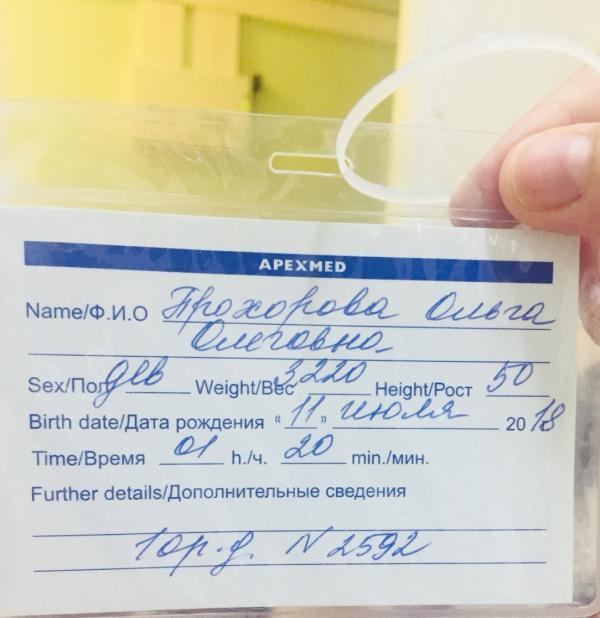 APEXMED
Name/Ф.И.О Прохорова Ольга
Олеговна
Sex/Пол дев Weight/Вес 3220 Height/Рост 50
Birth date/Дата рождения « 11 » июля 2018
Time/Время 01 h./ч. 20 min./мин.
Further details/Дополнительные сведения
1 ор.д. N 2592